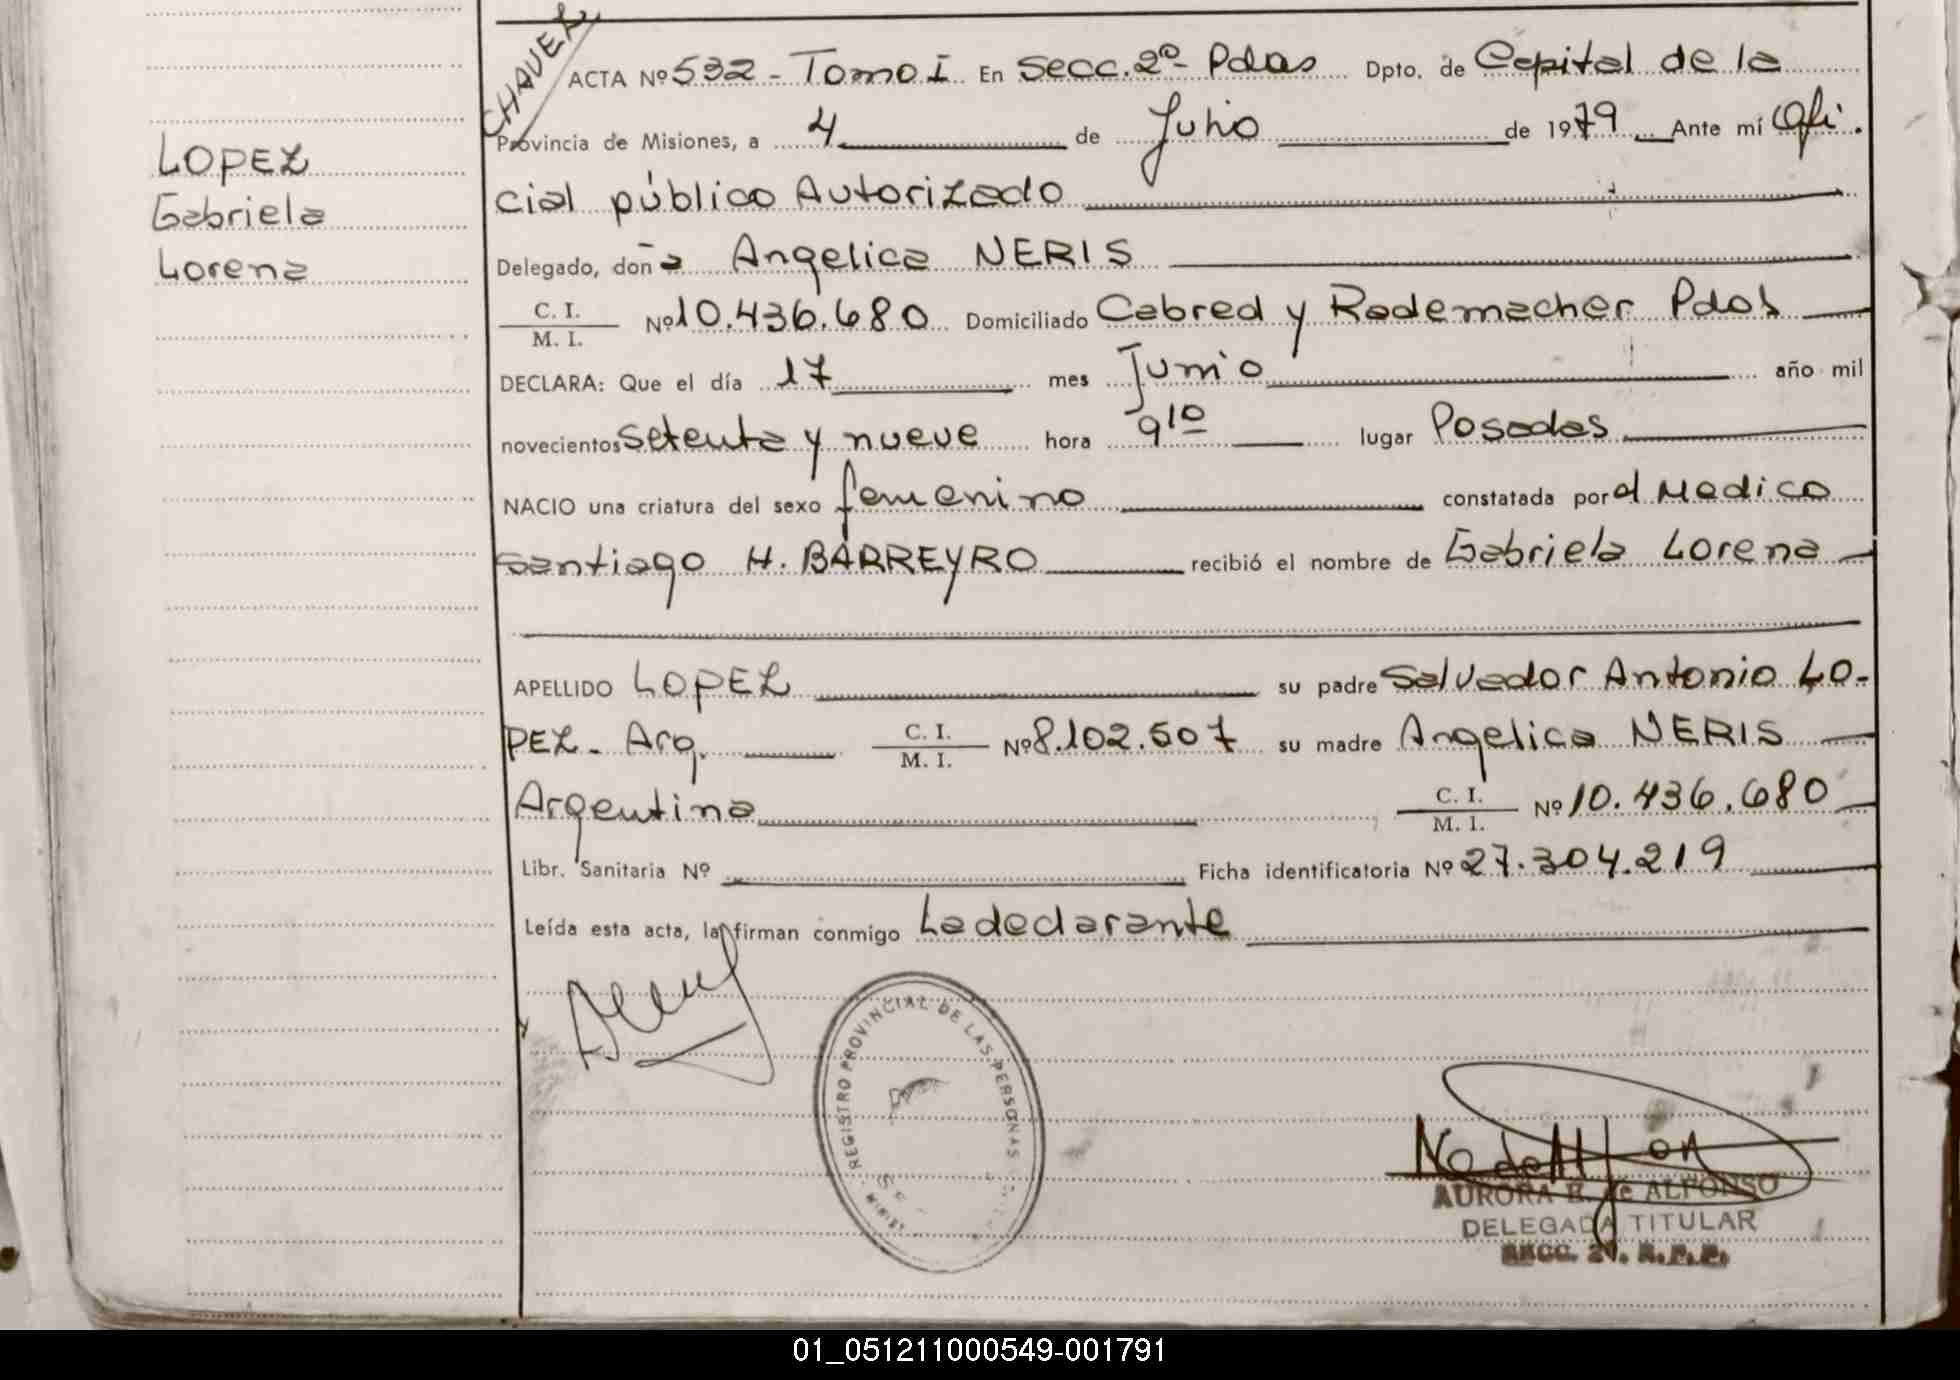 CHAVEZ
LOPEZ
Gabriela
Lorena
ACTA Nº 532 - Tomo I En Secc. 2º - Pdas Dpto. de Capital de la
Provincia de Misiones, a 4 de Julio de 1979 Ante mí Ofi.
cial público Autorizado
Delegado, doña Angelica NERIS
C. I.
M. I. Nº 10.436.680 Domiciliado Cabred y Rademacher Pdas
DECLARA: Que el día 17 mes Junio año mil
novecientos setenta y nueve hora 9 10 lugar Posadas
NACIO una criatura del sexo femenino constatada por el Medico
Santiago H. BARREYRO recibió el nombre de Gabriela Lorena
APELLIDO LOPEZ su padre Salvador Antonio LO-
PEZ - Arg. C. I. M. I. Nº 8.102.507 su madre Angelica NERIS
Argentina C. I. M. I. Nº 10.436.680
Libr. Sanitaria Nº Ficha identificatoria Nº 27.304.219
Leída esta acta, la firman conmigo La declarante
REGISTRO PROVINCIAL DE LAS PERSONAS
AURORA de ALFONSO
DELEGADA TITULAR
SECC. 2ª. R.P.P.
01_051211000549-001791